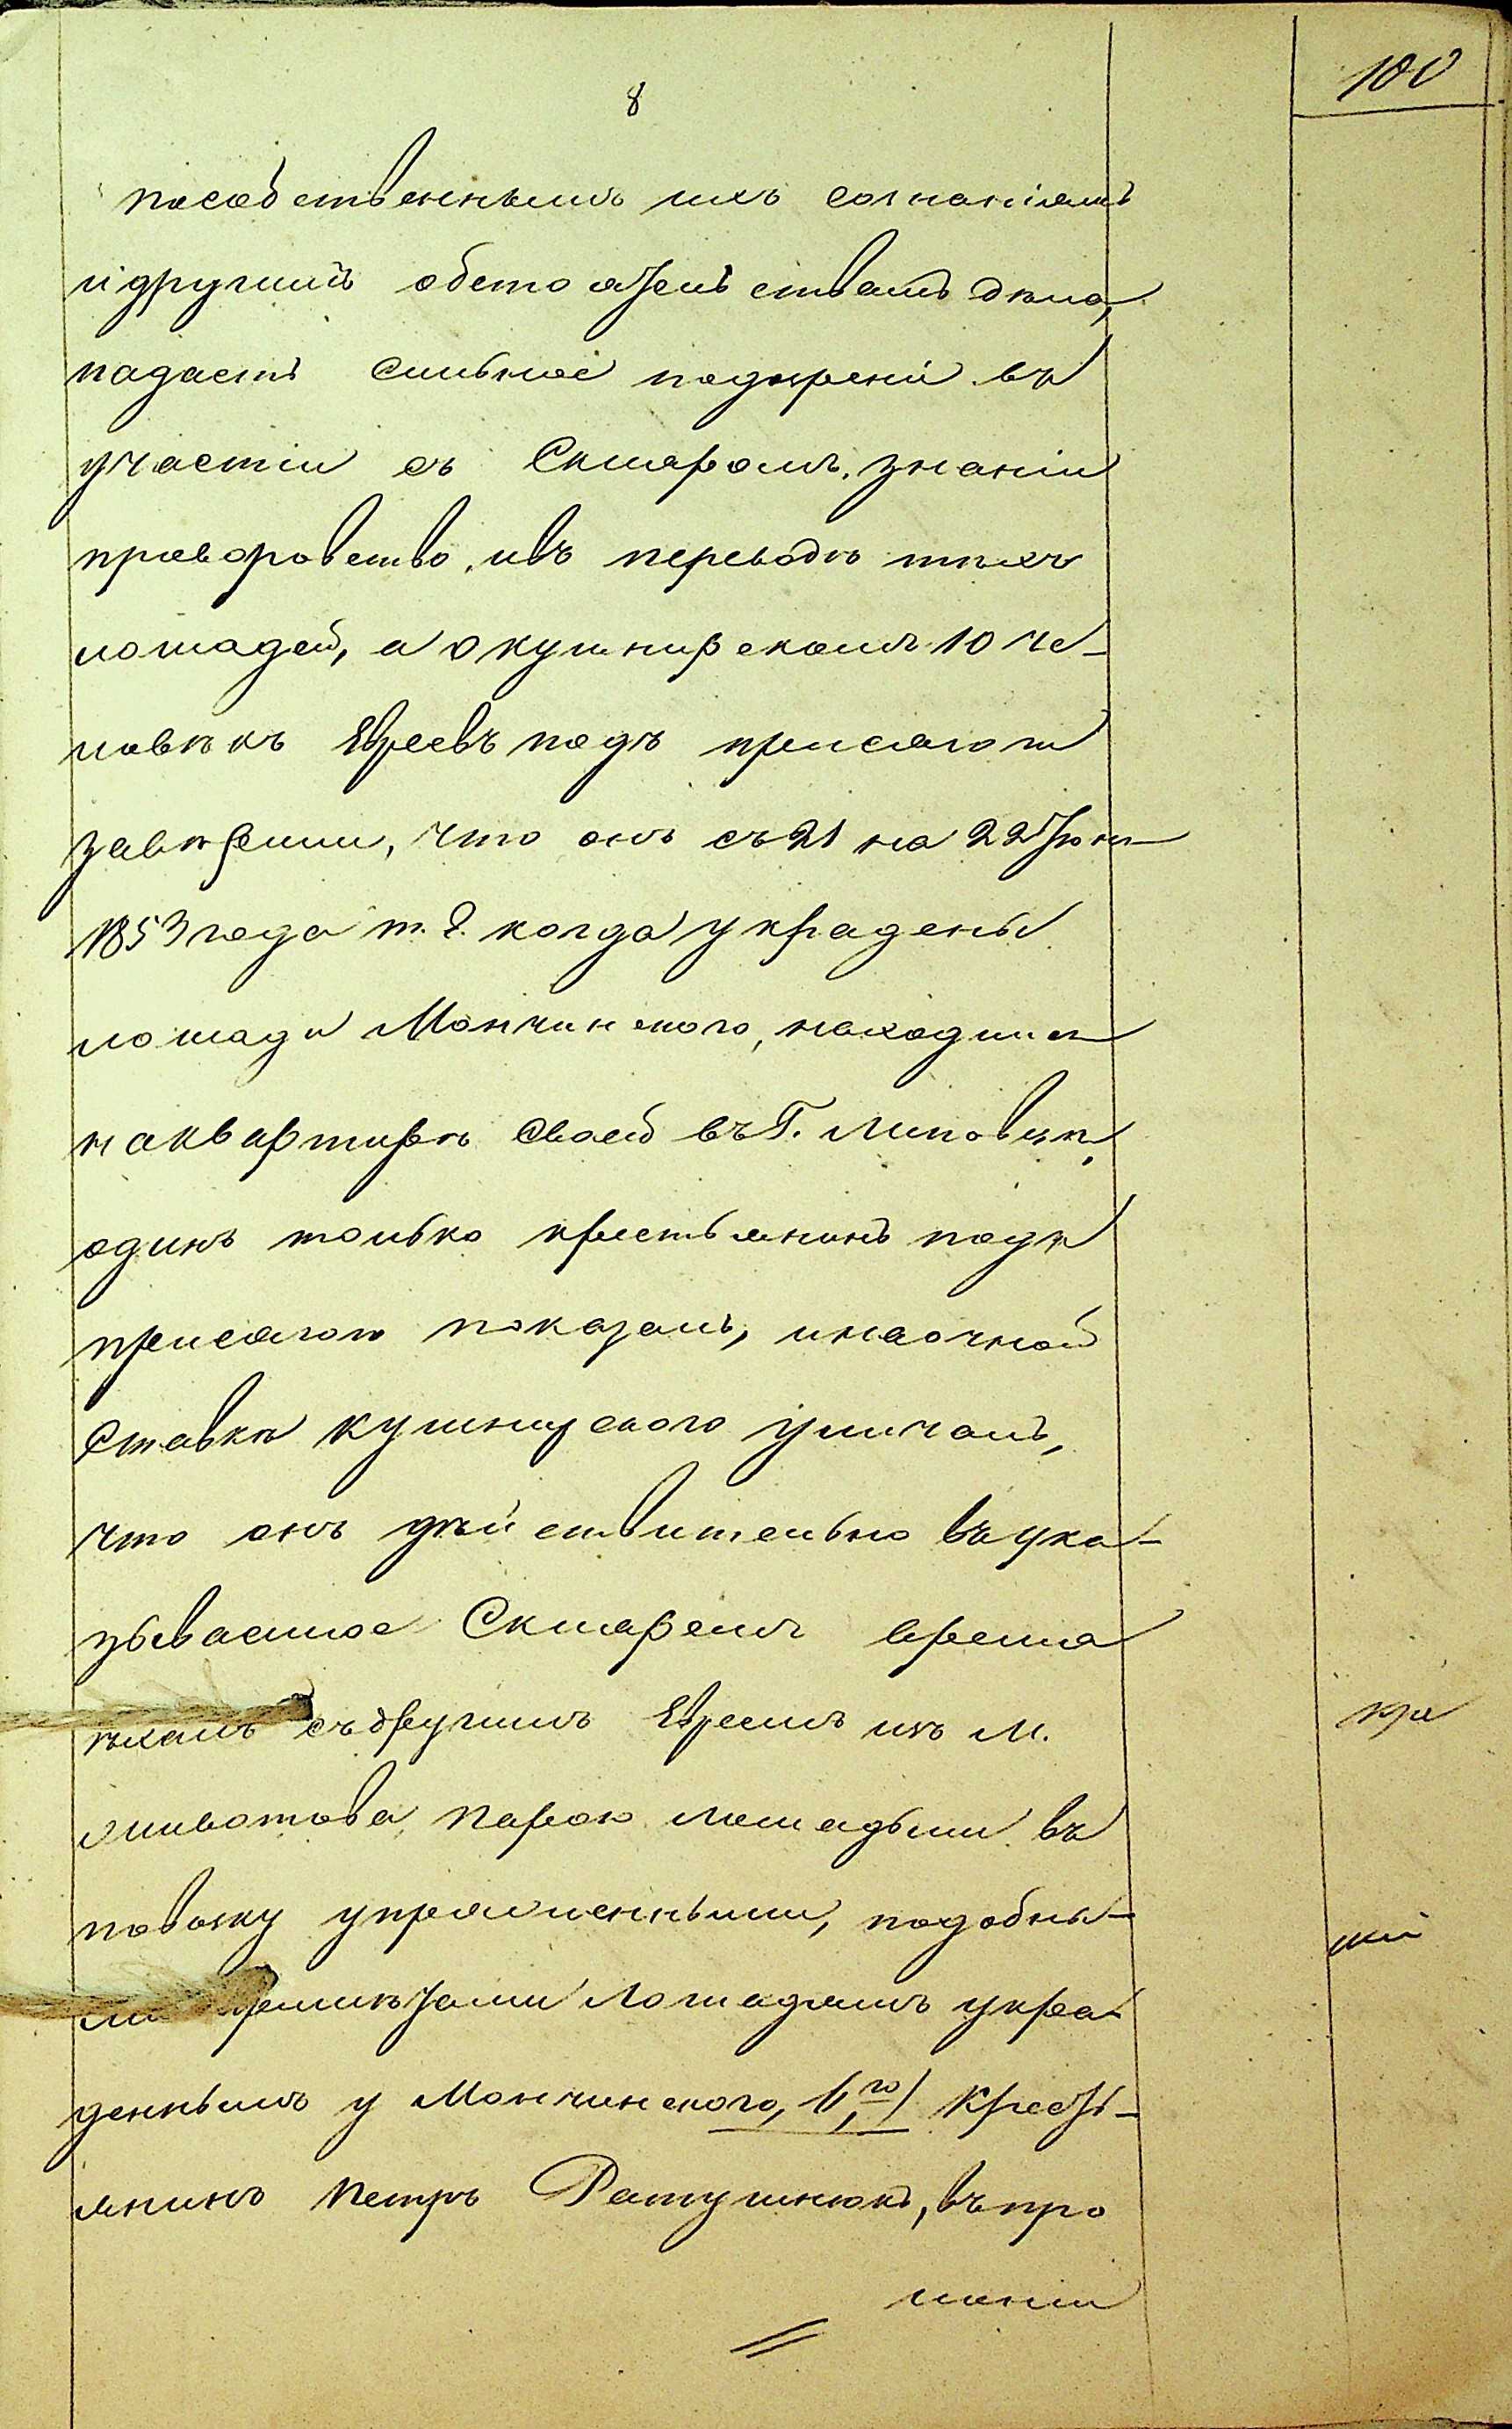 180
8
пособственнымъ ихъ сознаніямъ
и другимъ обстоятельствамъ дѣла,
падаетъ сильное подозреніе въ
участіи съ Скляромъ, знаніи
проворовство, ивъ переводѣ тѣхъ
лошадей, а о Кушнирскомъ 10 че-
ловѣкъ Евреевъ подъ присягою
завѣрили, что онъ съ 21 на 22 Іюня
1853 года т. е. когда украдены
лошади Мончинского, находился
на квартирѣ своей въ Г. Липовцѣ,
одинъ только крестьянинъ подъ
присягою показалъ, и на очной
ставкѣ Кушнирского уличалъ,
что онъ дѣйствительно въ ука-
зываемое Скляремъ время
ѣхалъ съ другимъ Евреемъ изъ М.
Животова парою лошадьми въ
повозку упряженными, подобны-
ми примѣтами лошадямъ укра-
деннымъ у Мончинского, 1, го) Кресть-
янинъ Петръ Ратушнюкъ, въ про